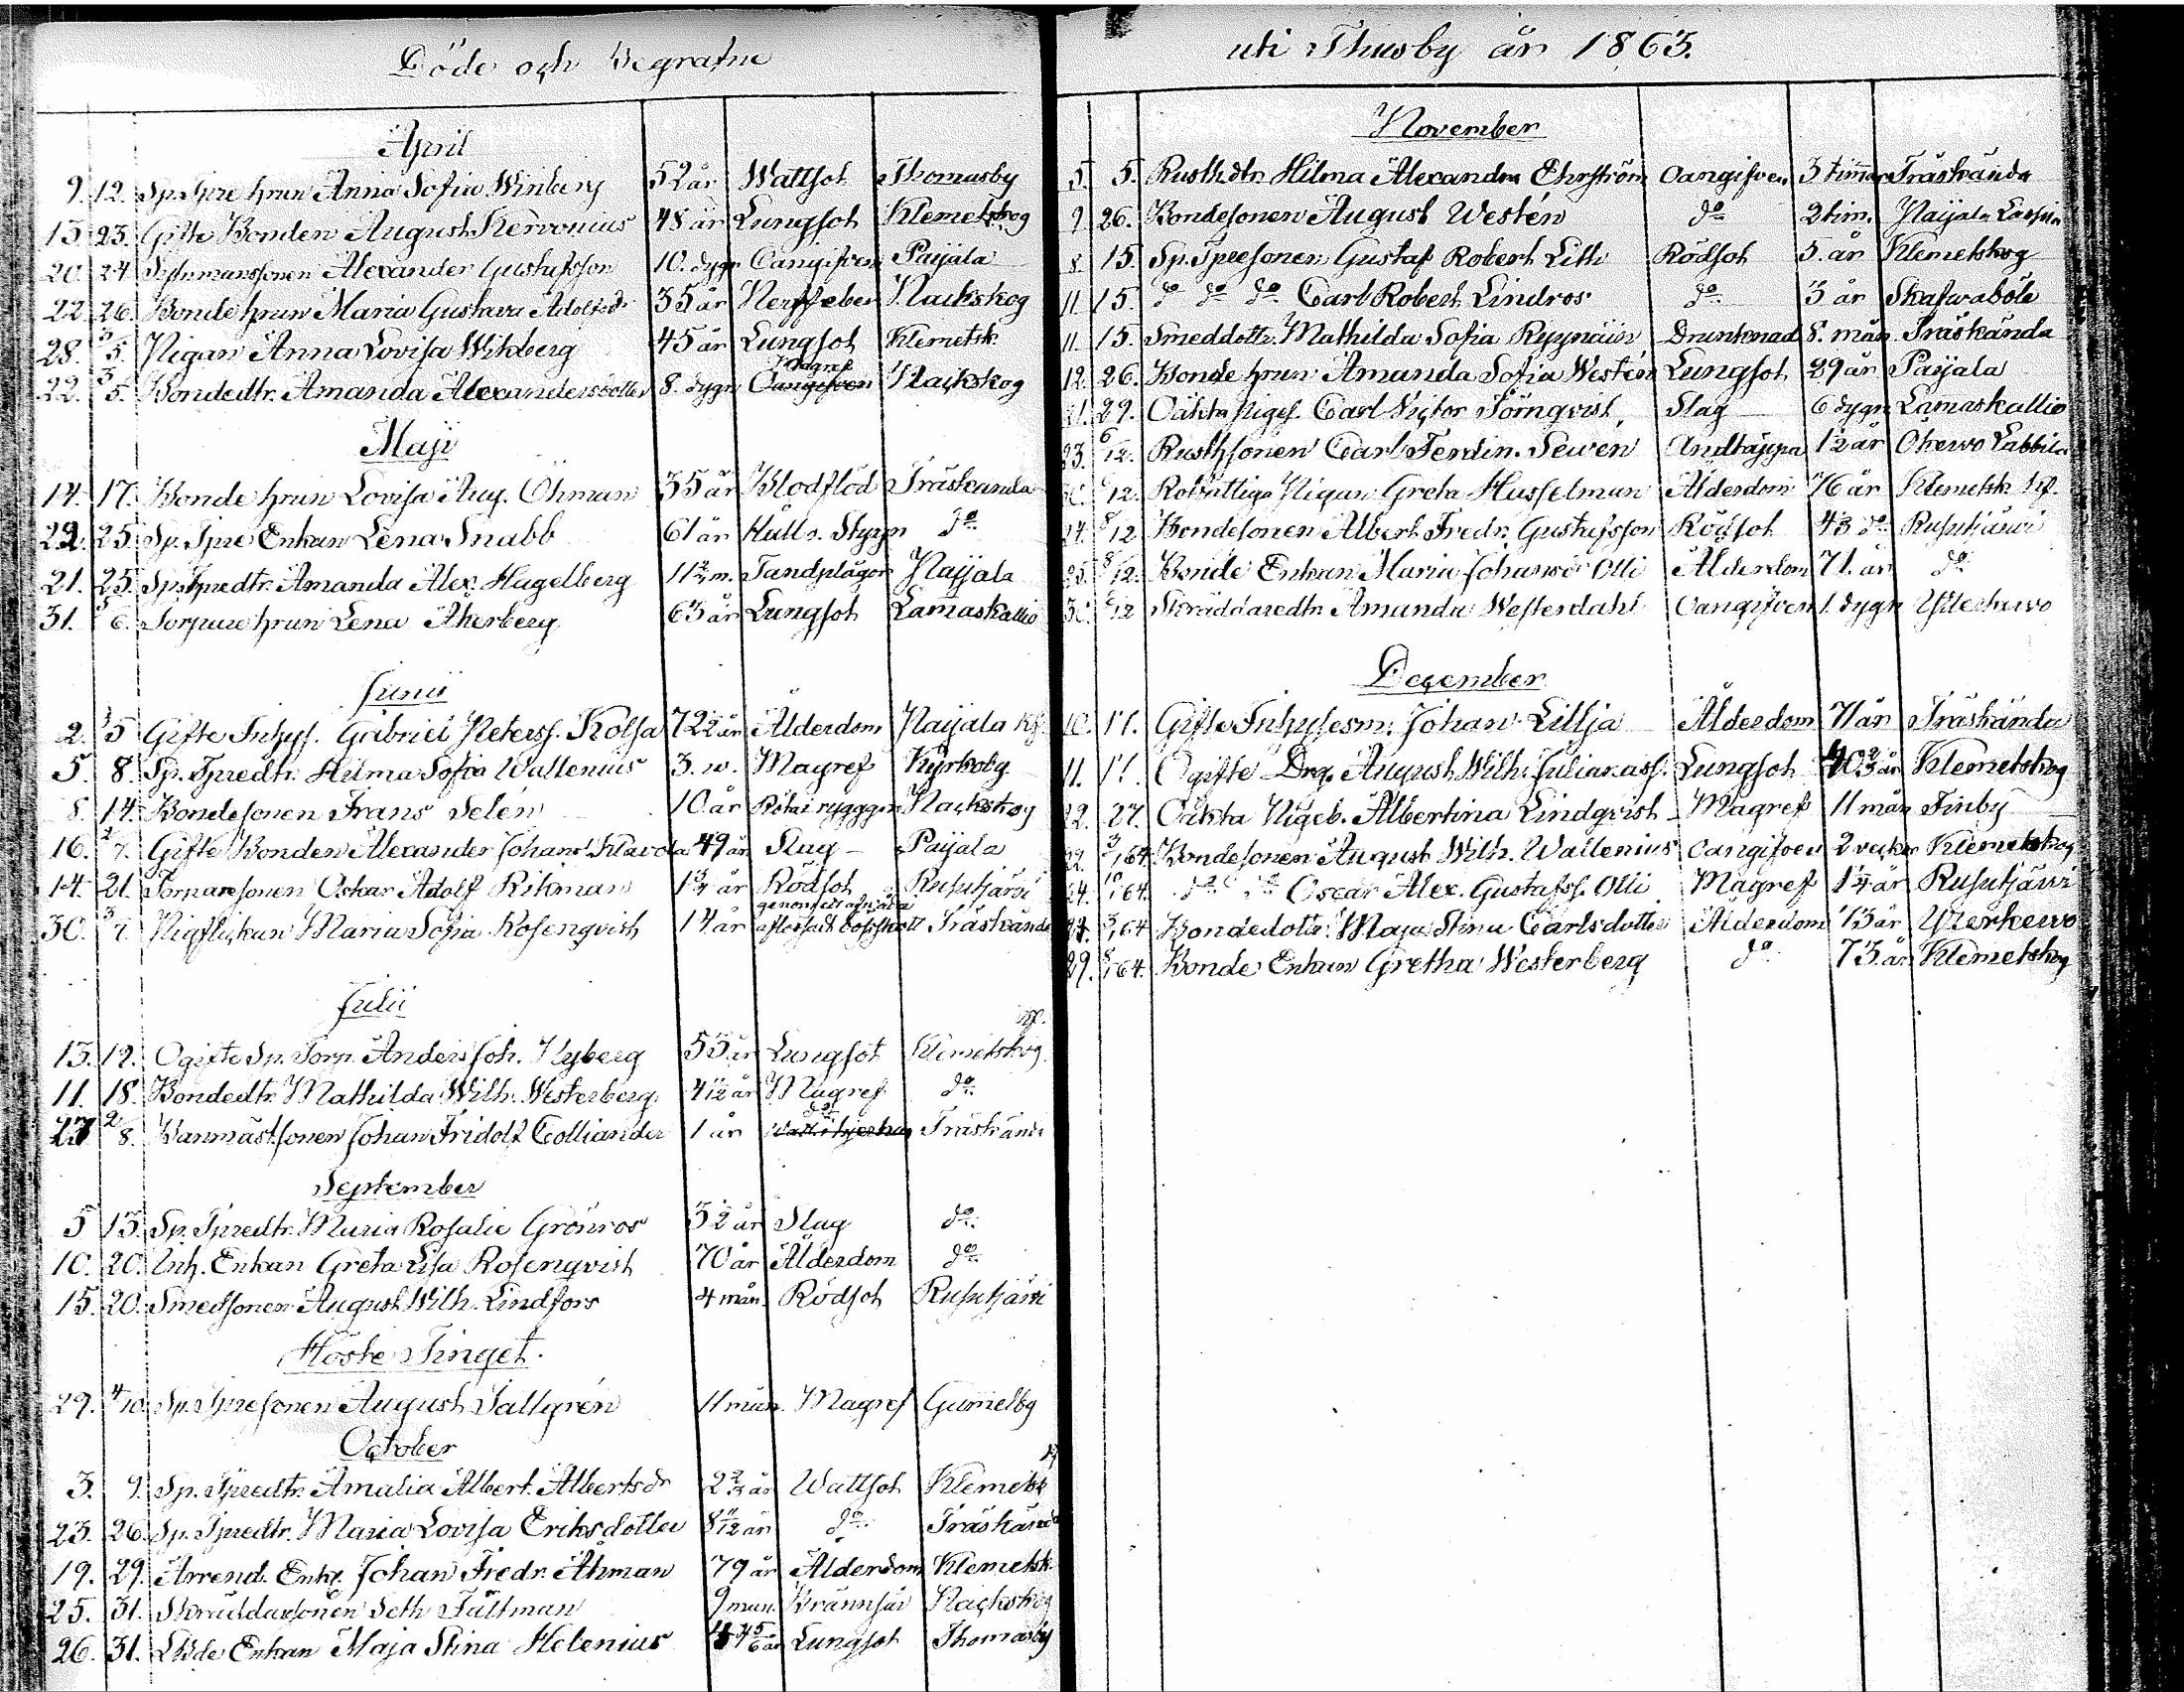 Döde och Begrafne
April
9. 12. Sp. Tpre hrun Anna Sofia Winberg 52 år Wattsot Thomasby
13. 23. Gifte Bonden August Kervonius 48 år Lungsot Klemetskog
20. 24 Alexander Gustafsson 10. dygn Oangifven Paijala
22. 26. Bonde hrun Maria Gustava Adolfsdr 35 år Nervfeber Nackskog
28. 3/5. Pigan Anna Lovisa Wikberg 45 år Lungsot Klemetsk.
22. 3/5. Bondedtr. Amanda Alexandersdotter 8. dygn Magref Oangifven Nackskog
Maji
14. 17. Bonde hrun Lovisa Aug. Öhman 35 år Blodflöd Träskanda
22. 25. Sp. Tpre Enkan Lena Snabb 61 år Håll o. Styng do
21. 25. Sp. Tpredtr. Amanda Alex. Hagelberg 11 m. Tandplågor Paijala
31. 6. Torpare hrun Lena Åkerberg 63 år Lungsot Lamaskallio
Junii
2. 5 Gifte Inhys. Gabriel Peterss. Kolsa 72 1/2 år Ålderdom Paijala
5. 8. Sp. Tpredtr. Hilma Sofia Wallenius 3. w. Magref Kyrkoby
8. 14. Bondesonen Frans Selén 10 år Röta i ryggen Nackskog
16. 2/7. Gifte Bonden Alexander Johans. Klavola 49 år Slag Paijala
14. 21. Torparesonen Oskar Adolf Rikman 1 3/4 år Rödsot Rusutjärvi
30. 3/7. Pigflickan Maria Sofia Rosenqvist 14 år Träskända
Julii
13. 19. Ogifte Sp. Torp. Anders Joh. Nyberg 53 år Lungsot Klemetskog
11. 18. Bondedtr. Mathilda Wilh. Westerberg 4 1/2 år Magref do
27 2/8. Johan Fridolf Colliander 1 år do Träskända
September
5 13. Sp. Tpredtr. Maria Rosalie Grönros 32 år Slag do
10. 20. Inh. Enkan Greta Lisa Rosenqvist 70 år Ålderdom do
15. 20. Smedsonen August Wilh. Lindfors 4 mån. Rödsot Rusutjärvi
Höste Tinget.
29. 4/10. Sp. Tpresonen August Sallgrén 11 mån. Magref Gumelbg
October
3. 9. Sp. Tpredtr. Amalia Albert. Albertsdr 2 2/3 år Wattsot Klemetsk
23. 26. Sp. Tpredtr. Maria Lovisa Eriksdotter 8 11/12 år do Träskända
19. 29. Arrend. Enkl. Johan Fredr. Åhman 79 år Ålderdom Klemetsk.
25. 31. Skräddarsonen Seth Fältman 9 mån. Brännsår Nackskog
26. 31. Enkan Maja Stina Helenius Lungsot Thomasby
uti Thusby år 1863.
November
5. 5. Rusthdtr. Hilma Alexandra Ehrström Oangifven 3 timmar Träskända
9. 26. Bondesonen August Westén do 2 tim. Paijala
8. 15. Sp. Tpresonen Gustaf Robert Lith Rödsot 5. år Klemetskog
11. 15. do do do Carl Robert Lindros do 3 år Skafwaböle
11. 15. Smeddottr. Mathilda Sofia Ryynäin Drunknad 8. mån. Träskända
12. 26. Bonde hrun Amanda Sofia Westén Lungsot 29 år Paijala
21. 29. Oäkta Pigs. Carl Victor Törnqvist Slag 6 dygn Lamaskallio
23. 6/12. Rusthsonen Carl Ferdin. Sewén Andtäppa 1 1/2 år Ohkewo Labbila
30. 6/12. Rotfattiga Pigan Greta Husselman Ålderdom 76 år Klemetsk.
24. 8/12 Bondesonen Albert Fredr. Gustafsson Rödsot 43 do Rusutjärvi
25. 8/12. Bonde Enkan Maria Johansdr Olli Ålderdom 71. år do
30. 6/12 Skräddaredtr. Amanda Westerdahl Oangifven 1. dygn Ytterkewo
December
10. 17. Gifte Inhysesm. Johan Lillja Ålderdom 71 år Träskända
11. 17. Ogifte Drg. August Wilh. Julianass. Lungsot 40 2/3 år Klemetskog
22. 27. Oäkta Pigeb. Albertina Lindqvist Magref 11 mån Finby
22. 3/1 64. Bondesonen August Wilh. Wallenius Oangifven 2 veckor Klemetskog
24. 10/1 64. do do Oscar Alex. Gustafss. Olli Magref 1 1/4 år Rusutjärvi
24. 3/1 64 Bondedottr. Maja Stina Carlsdotter Ålderdom 73 år Ytterkewo
29. 8/1 64. Bonde Enkan Gretha Westerberg do 73. år Klemetskog